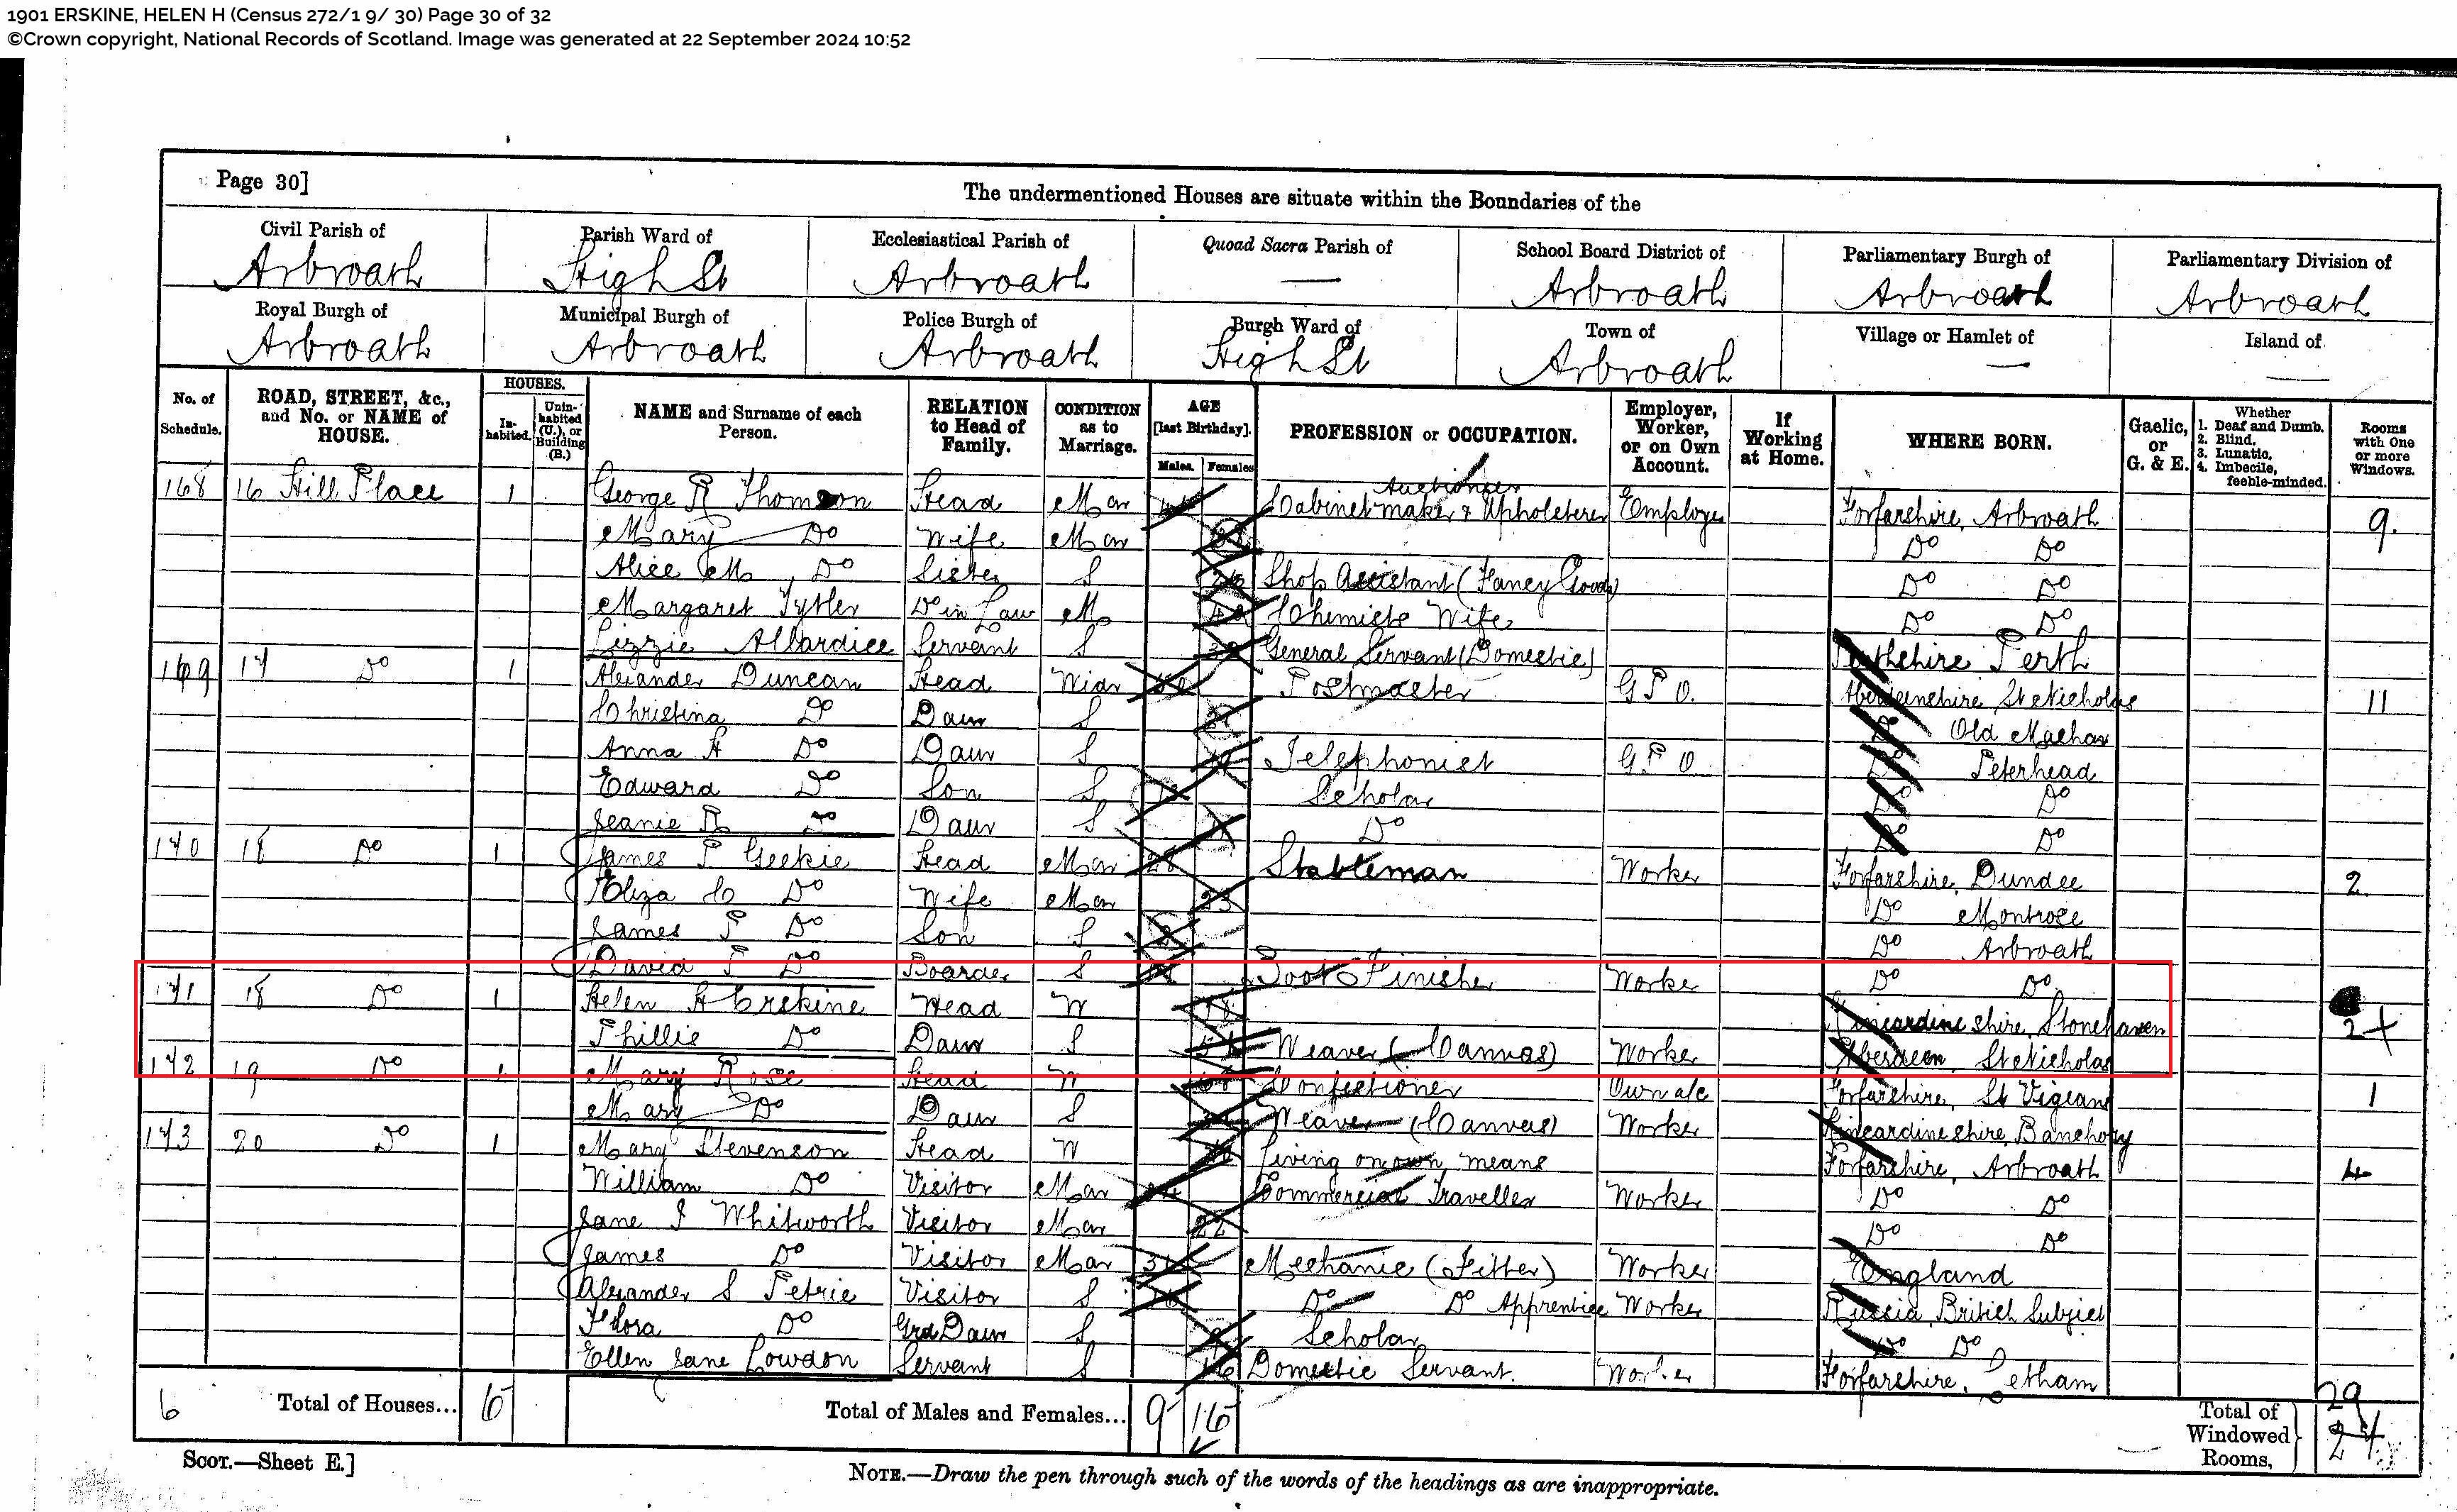 1901 ERSKINE, HELEN H (Census 272/1 9/ 30) Page 30 of 32
©Crown copyright, National Records of Scotland. Image was generated at 22 September 2024 10:52
Page 30]
The undermentioned Houses are situate within the Boundaries of the
Civil Parish of Parish Ward of Ecclesiastical Parish of Quoad Sacra Parish of School Board District of Parliamentary Burgh of Parliamentary Division of
Arbroath High St Arbroath — Arbroath Arbroath Arbroath
Royal Burgh of Municipal Burgh of Police Burgh of Burgh Ward of Town of Village or Hamlet of Island of
Arbroath Arbroath Arbroath High St Arbroath — —
No. of Schedule. ROAD, STREET, &c., and No. or NAME of HOUSE. HOUSES. Inhabited. Uninhabited (U.), or Building (B.) NAME and Surname of each Person. RELATION to Head of Family. CONDITION as to Marriage. AGE [last Birthday]. Males. Females PROFESSION or OCCUPATION. Employer, Worker, or on Own Account. If Working at Home. WHERE BORN. Gaelic, or G. & E. Whether 1. Deaf and Dumb. 2. Blind. 3. Lunatic. 4. Imbecile, feeble-minded. Rooms with One or more Windows.
Auctioneer
168 16 Hill Place 1 George R Thomson Head Mar Cabinetmaker & Upholsterer Employer Forfarshire, Arbroath 9
Mary Do Wife Mar Do Do
Alice M Do Sister S Shop Assistant (Fancy Goods) Do Do
Margaret Tytler Do in Law M Chemists Wife Do Do
Lizzie Allardice Servant S General Servant (Domestic) Perthshire Perth
169 17 Do 1 Alexander Duncan Head Widr Postmaster G P O. Aberdeenshire, St Nicholas 11
Christina Do Daur S Do Old Machar
Anna H Do Daur S Telephonist G P O Do Peterhead
Edward Do Son S Scholar Do Do
Jeanie R Do Daur S Do Do Do
170 18 Do 1 James P Geekie Head Mar 28 Stableman Worker Forfarshire, Dundee 2
Eliza C Do Wife Mar 23 Do Montrose
James P Do Son S Do Arbroath
David P Do Boarder S Boot Finisher Worker Do Do
171 18 Do 1 Helen H Erskine Head W Kincardineshire, Stonehaven 2
Phillis Do Daur S Weaver (Canvas) Worker Aberdeen St Nicholas
172 19 Do 1 Mary Rose Head W Confectioner Own a/c Forfarshire, St Vigeans 1
Mary Do Daur S Weaver (Canvas) Worker Kincardineshire, Banchory
173 20 Do 1 Mary Stevenson Head W Living on own means Forfarshire, Arbroath 4
William Do Visitor Mar Commercial Traveller Worker Do Do
Jane I Whitworth Visitor Mar 22 Do Do
James Do Visitor Mar Mechanic (Fitter) Worker England
Alexander S Petrie Visitor S Do Do Apprentice Worker Russia, British Subject
Flora Do Grd Daur S Scholar Do Do
Ellen Jane Lowdon Servant S 16 Domestic Servant. Worker Forfarshire, Letham
6 Total of Houses... 6 Total of Males and Females... 9 16 Total of Windowed Rooms, 29 24
SCOT.—Sheet E.]
NOTE.—Draw the pen through such of the words of the headings as are inappropriate.